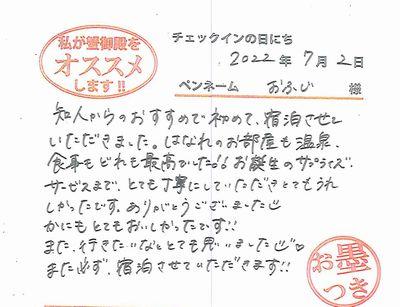 私が蟹御殿を
オススメ
します!!
チェックインの日にち
2022年7月2日
ペンネーム おふじ 様
知人からのおすすめで初めて、宿泊させて
いただきました。はなれのお部屋も温泉、
食事もどれも最高でした!! お誕生のサプライズ
サービスまで、とても丁寧にしていただきとてもうれ
しかったです。ありがとうございました
かにもとてもおいしかったです!!
また、行きたいなととても思いました♡
また必ず、宿泊させていただきます!!
お墨
つき